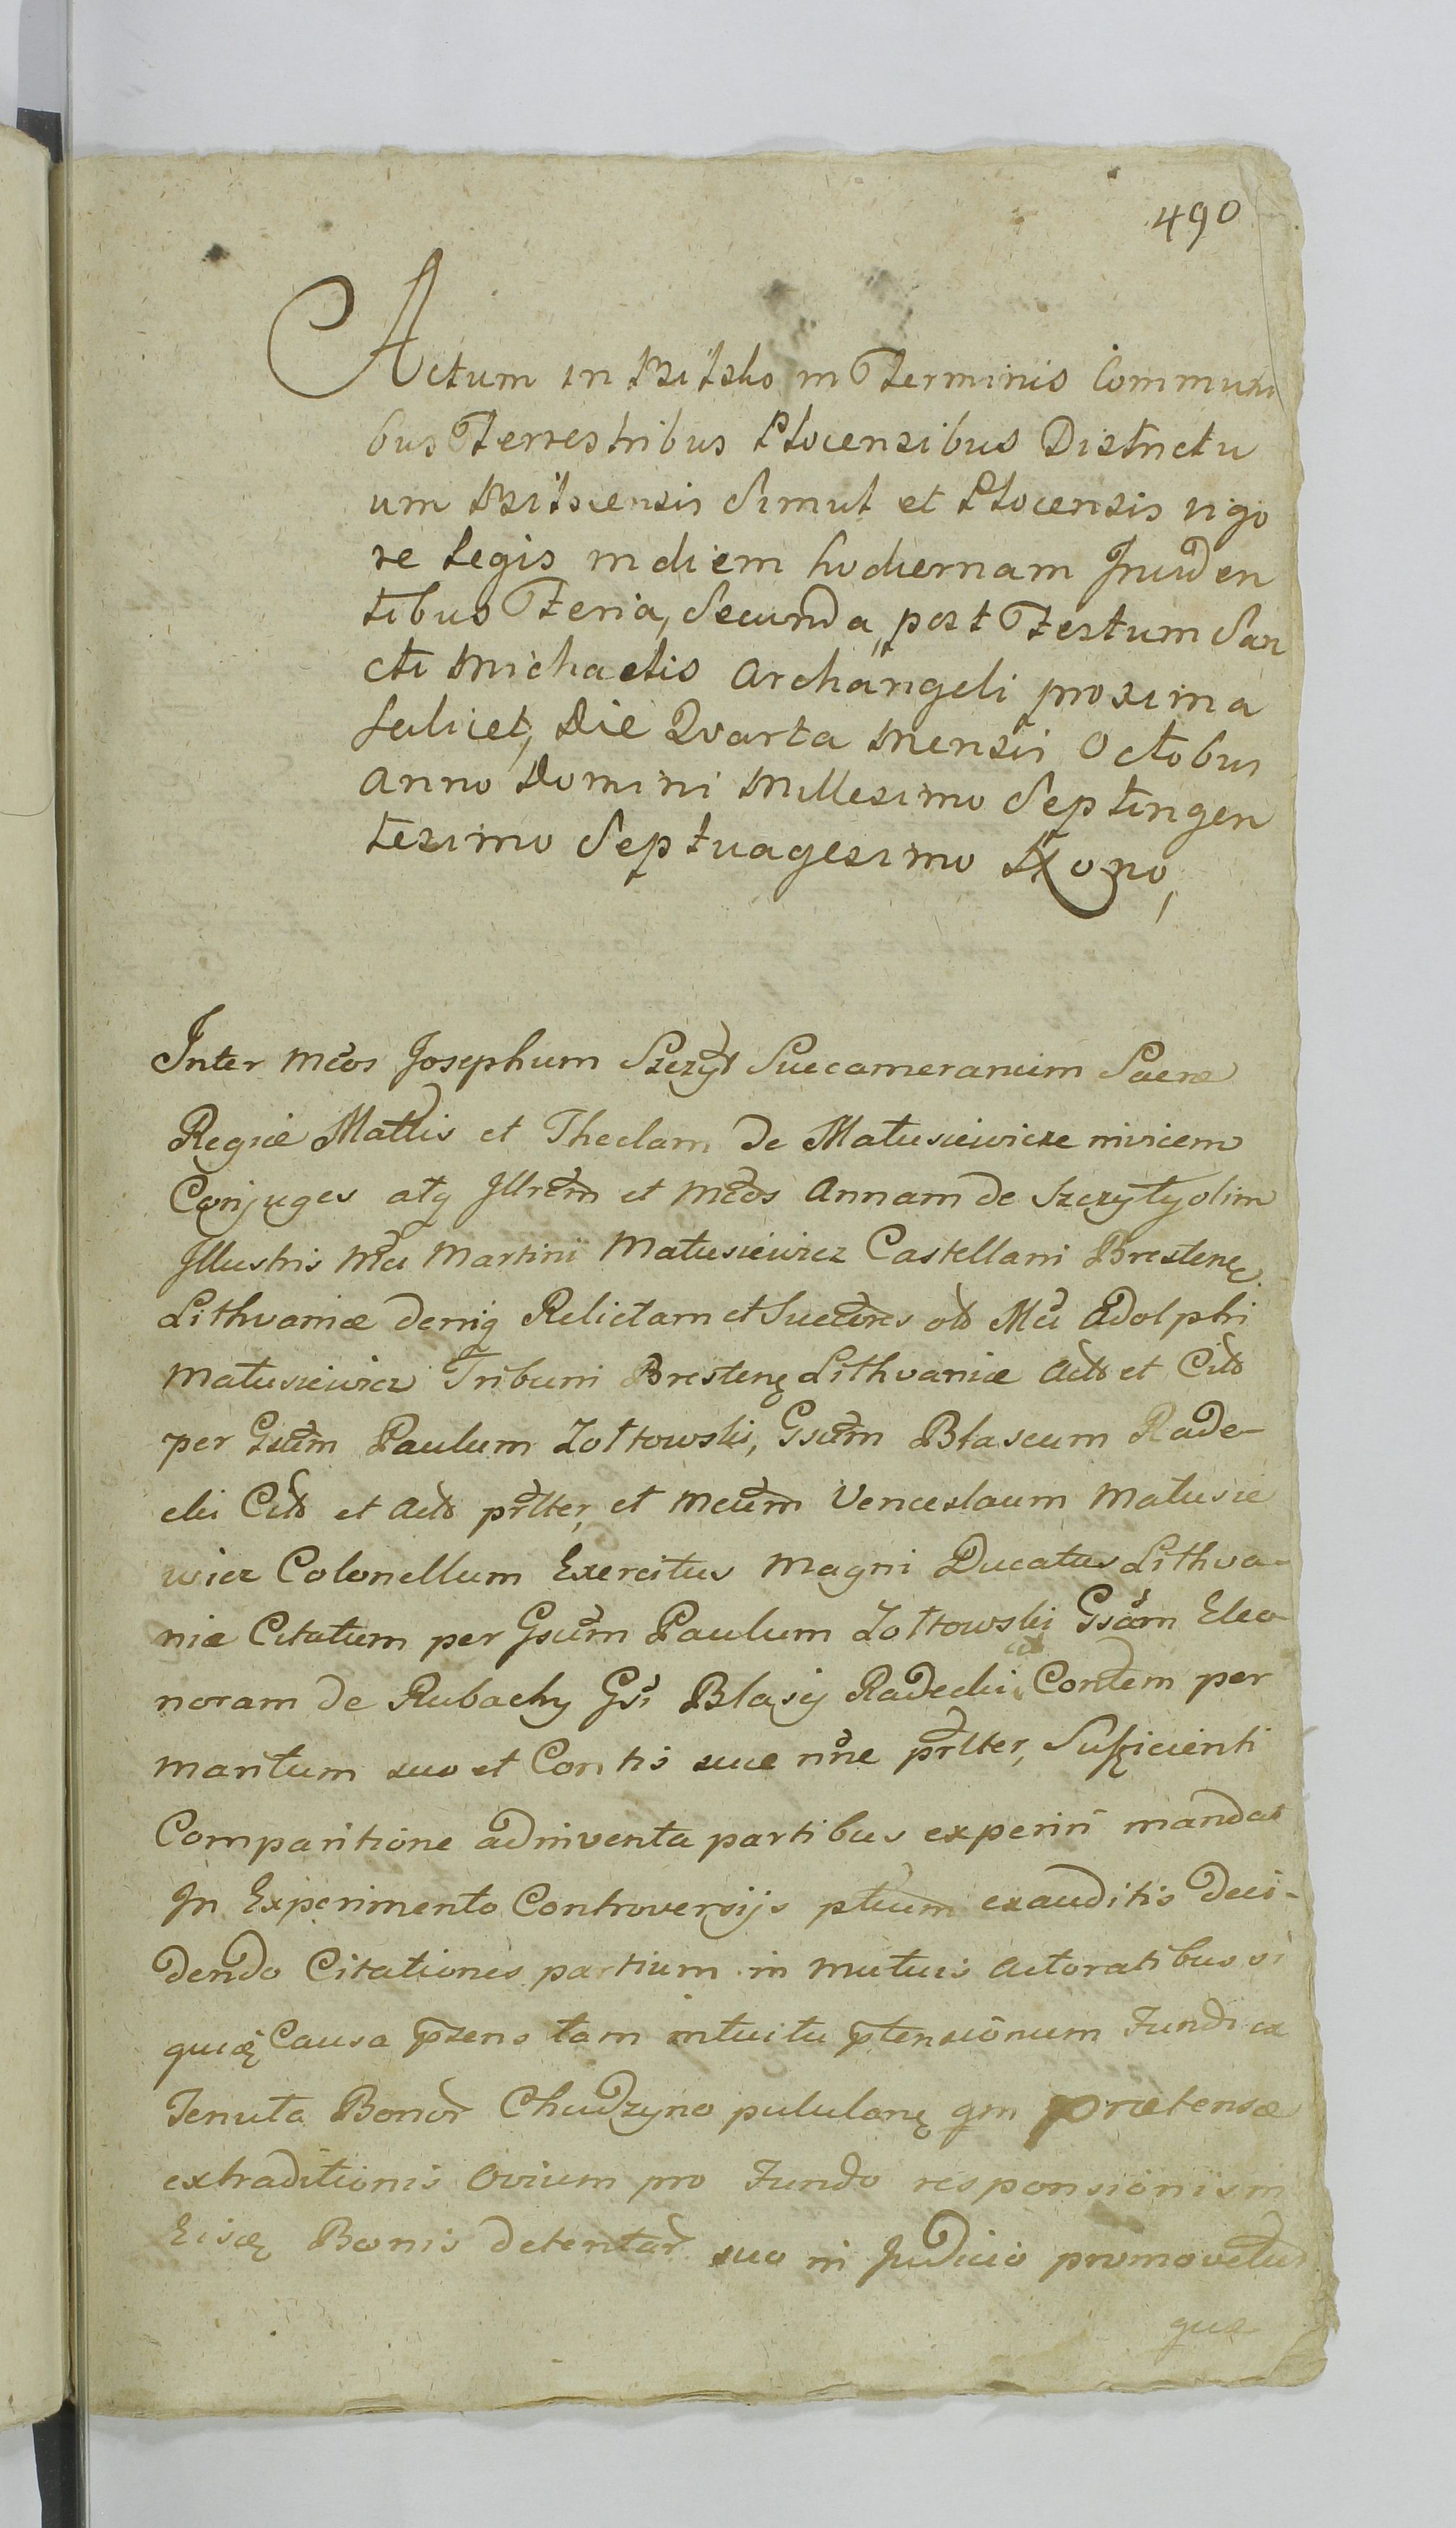 490
Actum in Bielsko in Terminis Communi
bus Terrestribus Plocensibus Districtu
um Bielscensis Simul et Plocensis vigo
re Legis in diem hodiernam Inciden
tibus Feria, Secunda, post Festum San
cti Michaelis Archangeli proxima
scilicet, Die Qvarta Mensis Octobris
Anno Domini Millesimo Septingen
tesimo Septuagesimo Nono,
Inter Mcos Josephum Szczyt Succamerarium Sacræ
Regiæ Mattis et Theclam de Matusiewicze invicem
Conjuges atq Illrem et Mcos Annam de Szczyty olim
Illustris Mci Martini Matusiewicz Castellani Bresten
Lithvaniæ deniq Relictam et Succres ol Mci Adolphi
Matusiewicz Tribuni Bresten Lithvaniæ Act et Cit
per Gsum Paulum Zołtowski, Gsum Blasium Rade-
cki Cit et Act prlter, et Mcum Venceslaum Matusie
wicz Colonellum Exercitus Magni Ducatus Lithva-
niæ Citatum per Gsum Paulum Zołtowski Gsam Eleo
noram de Rubachy Gsi Blasij Radecki Contem per
maritum suo et Contis suæ nne prlter, Sufficienti
Comparitione adinventa partibus experiri mandat
In Experimento Controversijs ptium exauditis deci-
dendo Citationes partium in mutuis Actoratibus si
quidę Causa przens tam intuitu ptensionum Fundi ex
Tenuta Bonor Chudzyno pululanę qm prætensæ
extraditionis Ovium pro Fundo responsionis in
Eisdę Bonis detentar suo in Judicio promovetur
quæ